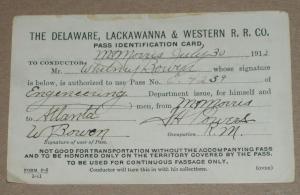 THE DELAWARE, LACKAWANNA & WESTERN R. R. CO.
PASS IDENTIFICATION CARD,
McMorris July 30 1912
TO CONDUCTOR:
Mr. Whitney Bowen whose signature
is below, is authorized to use Pass No.
Engeneering Department issue, for himself and
( ) men, from McMorris
to Atlanta
W Bowen
Signature of user of Pass.
Occupation. R. M.
NOT GOOD FOR TRANSPORTATION WITHOUT THE ACCOMPANYING PASS
AND TO BE HONORED ONLY ON THE TERRITORY COVERED BY THE PASS.
TO BE USED FOR CONTINUOUS PASSAGE ONLY,
Conductor will turn this in with his collections.
(OVER)
FORM
3-11